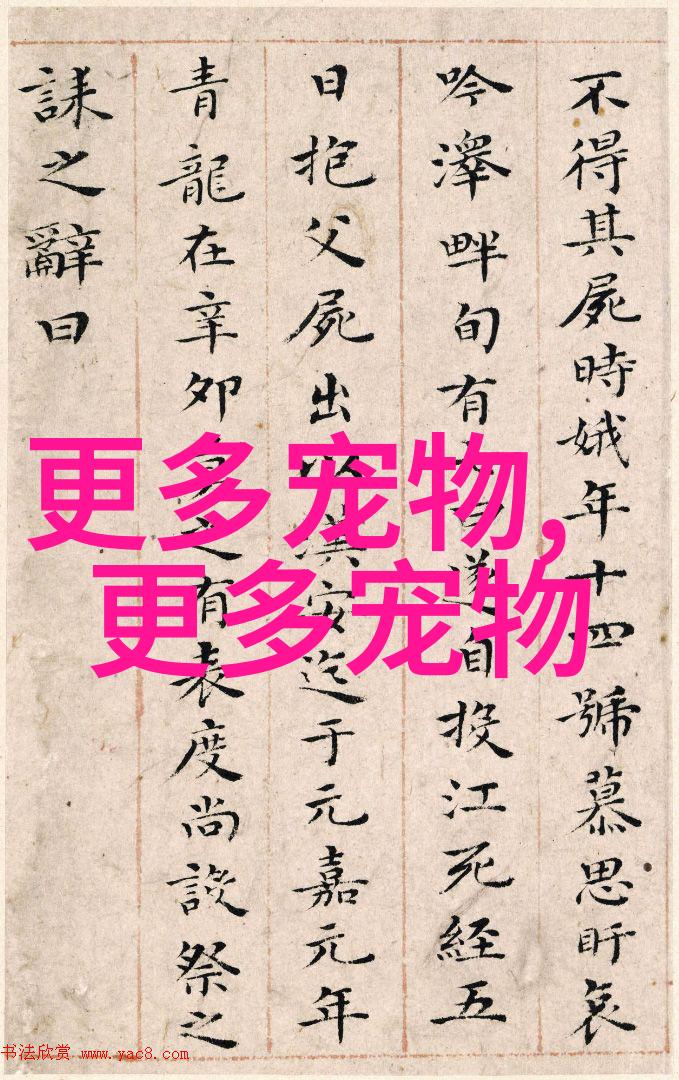 不得其屍時娥年十四號慕思盱哀
吟澤畔旬有遂自投江死經五
日抱父屍出以漢安迄于元嘉元年
青龍在辛卯之有表度尚設祭之
誄之辭曰
更多宠物,
更多宠物
书法欣赏 www.yac8.com